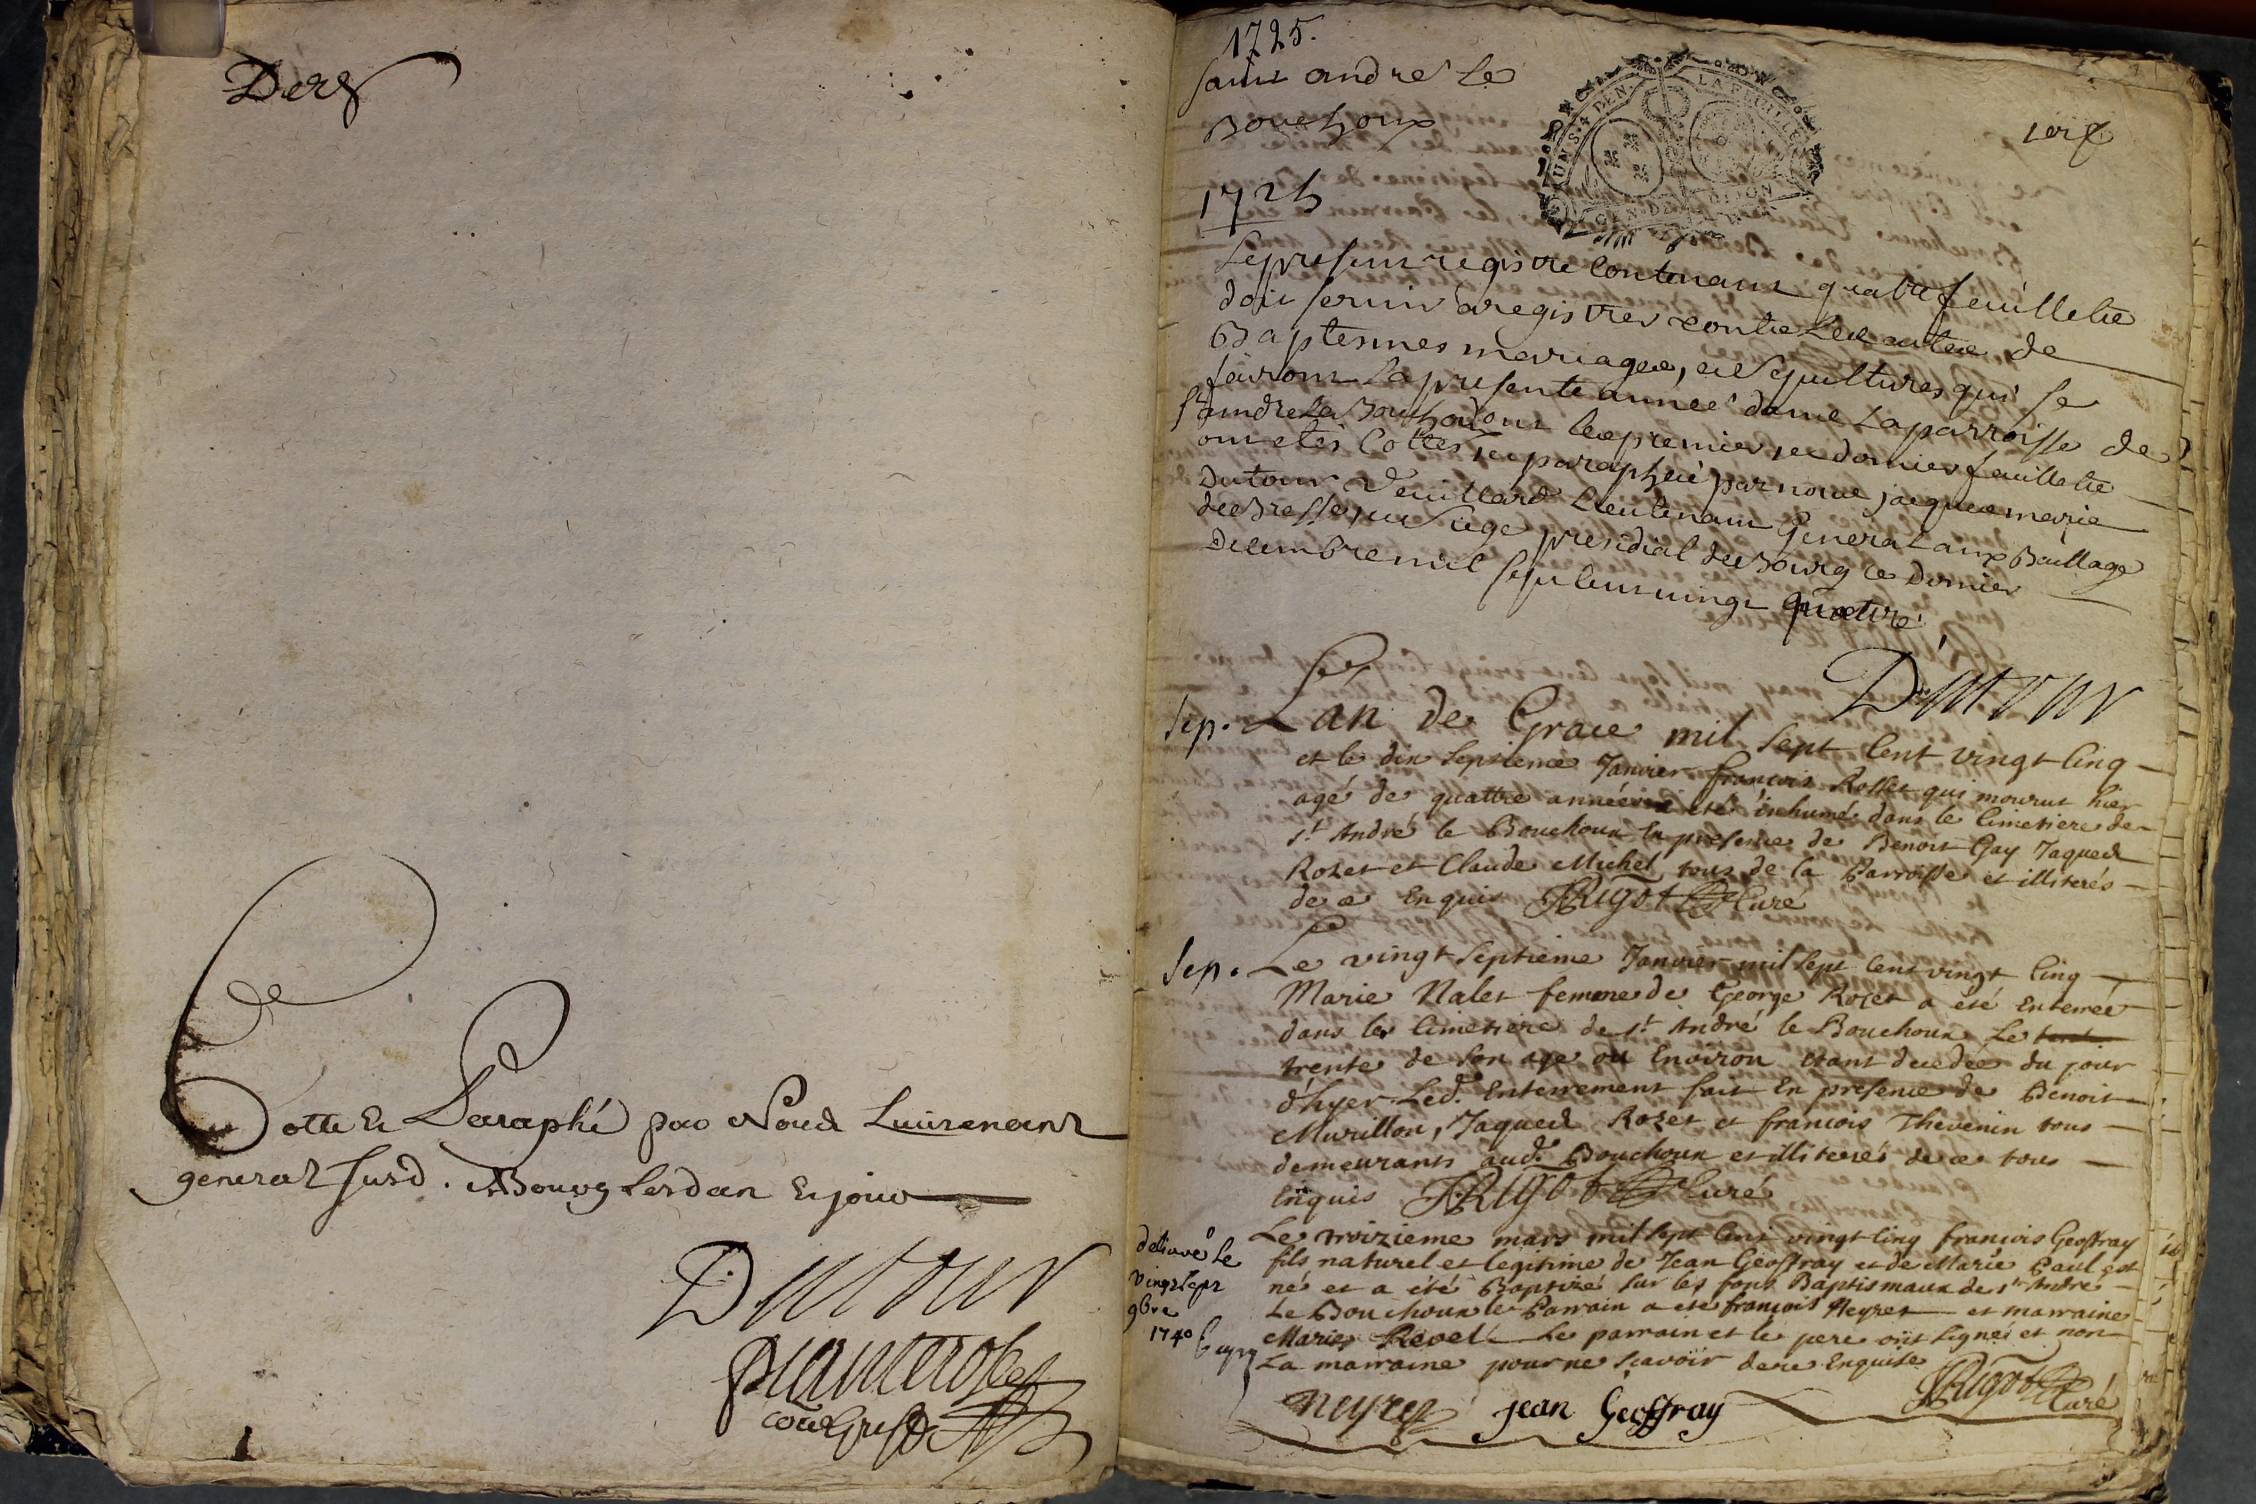 Der
Cotte et Paraphé par Nous Lieutenant
general susd. A Bourg lesd an et jour
Dutour
1725.
saint andre le
Bouchoux
1er
LA FEUILLE
GEN. DE DIJON
1725
Le present registre Contenant quatre feuillets
doit servir a registrer contre Les actes de
Baptesmes mariages, et Sepultures qui se
fairont La presente année dans La parroisse de
st andre Le Bouchou dont les premier, et dernier feuillets
ont etés Cottés, et paraphés par nous jacques marie
Dutour Veuillard Lieutenant General aux Baillage
de Bresse, et siege presidial de Bourg ce dernier
Decembre mil sept cent vingt quatre.
Dutour
Sep. L'an de Grace mil sept Cent vingt Cinq
et le dix septieme Janvier françois Rosset qui mourut hier
agé de quattre années eté inhumé dans le Cimetiere de
st André le Bouchoux En presence de Benoit Gay Jaques
Rozet et Claude Michel tous de la Parroisse et illiterés
de ce Enquis JRigot Curé
Sep. Le vingt septieme Janvier mil sept Cent vingt Cinq
Marie Nalet femme de George Rozet a eté Enterrée
dans le Cimetiere de st André le Bouchoux Le
trente de son age ou Environ etant decedée du jour
d'hyer Led. Enterrement fait En presence de Benoit
Murillon, Jaques Rozet et francois Thevenin tous
demeurants aud. Bouchoux et illiterés de ce tous
Enquis JRigot Curé
delivré le
vingt sept
9bre
1740
Le troizieme mars mil sept Cent vingt Cinq francois Geoffray
fils naturel et legitime de Jean Geoffray et de Marie Paul est
né et a eté Baptizé sur les fons Baptismaux de st André
Le Bouchoux le Parrain a eté françois Neyret et marraine
Marie Revel Le parrain et le pere ont signé et non
La marraine pour ne sçavoir de ce Enquise
JRigot Curé
neyret jean Geoffray